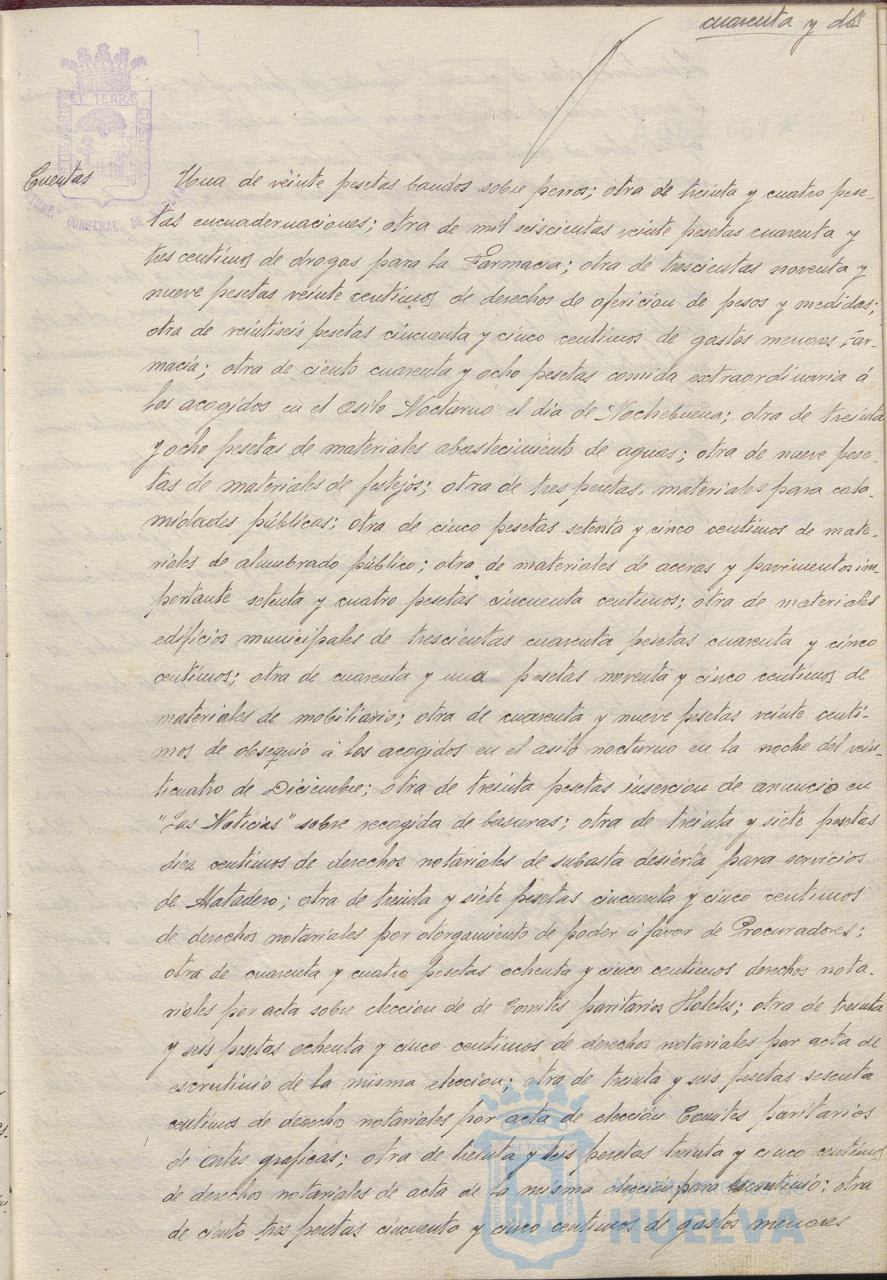 cuarenta y dos
Cuentas
Una de veinte pesetas bandos sobre perros; otra de treinta y cuatro pese-
tas encuadernaciones; otra de mil seiscientas veinte pesetas cuarenta y
tres centimos de drogas para la Farmacia; otra de trescientas noventa y
nueve pesetas veinte centimos de derechos de afericion de pesos y medidas;
otra de veintiseis pesetas cincuenta y cinco centimos de gastos menores Far-
macia; otra de ciento cuarenta y ocho pesetas comida extraordinaria á
los acogidos en el Asilo Nocturno el dia de Nochebuena; otra de treinta
y ocho pesetas de materiales abastecimiento de aguas; otra de nueve pese-
tas de materiales de festejos; otra de tres pesetas, materiales para cala-
midades públicas; otra de cinco pesetas setenta y cinco centimos de mate-
riales de alumbrado público; otra de materiales de aceras y pavimentos im-
portante setenta y cuatro pesetas cincuenta centimos; otra de materiales
edificios municipales de trescientas cuarenta pesetas cuarenta y cinco
centimos; otra de cuarenta y una pesetas noventa y cinco centimos de
materiales de mobiliario; otra de cuarenta y nueve pesetas veinte centi-
mos de obsequio á los acogidos en el asilo nocturno en la noche del vein-
ticuatro de Diciembre; otra de treinta pesetas insercion de anuncio en
"Las Noticias" sobre recogida de basuras; otra de treinta y siete pesetas
diez centimos de derechos notariales de subasta desierta para servicios
de Matadero; otra de treinta y siete pesetas cincuenta y cinco centimos
de derechos notariales por otorgamiento de poder á favor de Procuradores;
otra de cuarenta y cuatro pesetas ochenta y cinco centimos derechos nota-
riales por acta sobre eleccion de de Comités paritarios Hoteles; otra de treinta
y seis pesetas ochenta y cinco centimos de derechos notariales por acta de
escrutinio de la misma eleccion; otra de treinta y seis pesetas sesenta
centimos de derecho notariales por acta de elección Comites paritarios
de Artes graficas; otra de treinta y seis pesetas treinta y cinco centimos
de derechos notariales de acta de la misma eleccion para escrutinio; otra
de ciento tres pesetas cincuenta y cinco centimos de gastos menores
HUELVA